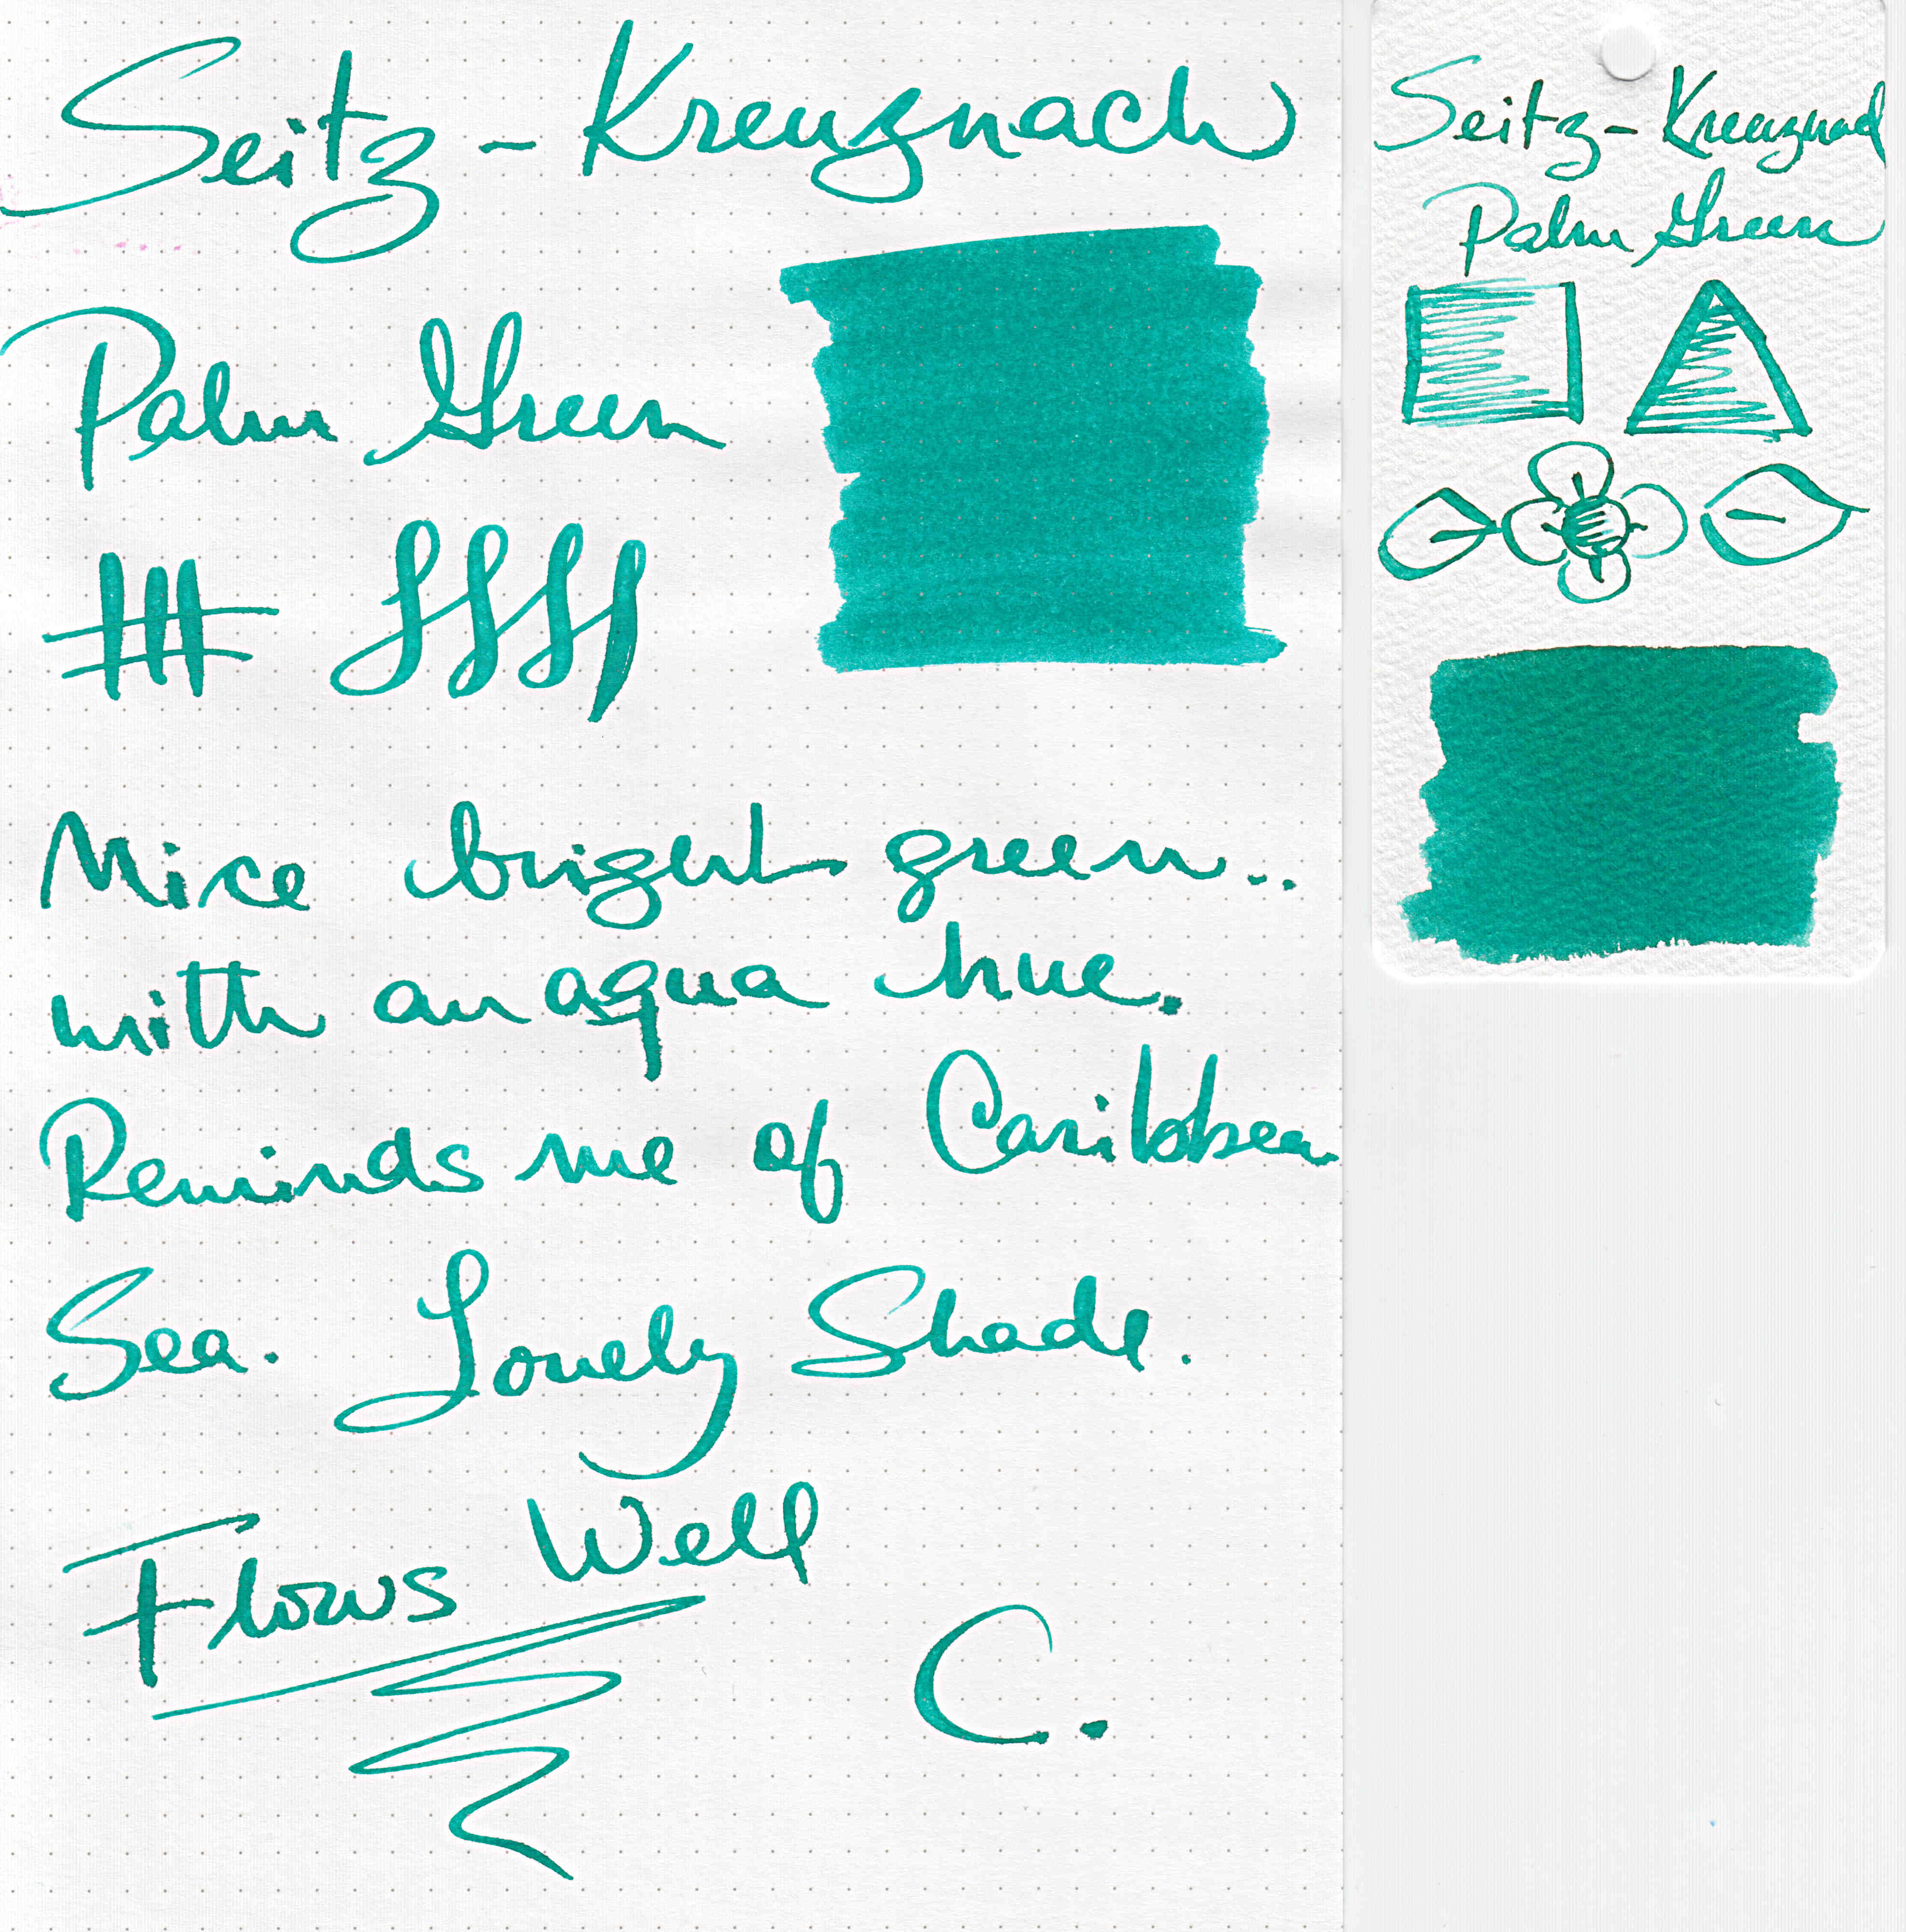 Seitz-Kreuznach
Palm Green
Nice bright green..
with an aqua hue.
Reminds me of Caribbean
Sea. Lovely Shade.
Flows Well
C.
Seitz-Kreuznach
Palm Green